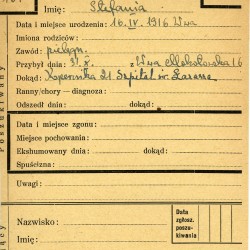 Imię: Stefania
Data i miejsce urodzenia: 16.IV.1916 W-wa
Imiona rodziców:
Zawód: pielęgn.
Przybył dnia: 31.X. z W-wa Mokotowska 6
Dokąd: Kopernika 21 Szpital w.
Ranny/chory — diagnoza:
Odszedł dnia: dokąd:
Data i miejsce zgonu:
Miejsce pochowania:
Ekshumowany dnia: dokąd:
Spuścizna:
Uwagi:
Nazwisko:
Imię:
Data
zgłosz.
poszu-
kiwania
Poszukiwany